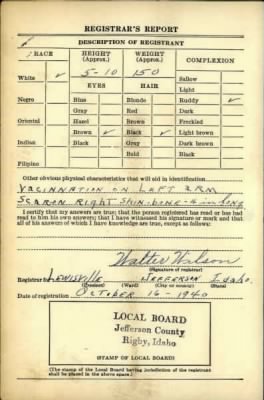 REGISTRAR'S REPORT
DESCRIPTION OF REGISTRANT
RACE HEIGHT (Approx.) WEIGHT (Approx.) COMPLEXION
White ✓ 5-10 150 Sallow
EYES HAIR Light
Negro Blue Blonde Ruddy ✓
Gray Red Dark
Oriental Hazel Brown Freckled
Brown ✓ Black ✓ Light brown
Indian Black Gray Dark brown
Bald Black
Filipino
Other obvious physical characteristics that will aid in identification
VACINNATION ON LEFT ARM
SCAR ON RIGHT SHIN-BONE-4 in LONG
I certify that my answers are true; that the person registered has read or has had
read to him his own answers; that I have witnessed his signature or mark and that
all of his answers of which I have knowledge are true, except as follows:
Walter Wilson
(Signature of registrar)
Registrar for LEWISVILLE JEFFERSON Idaho
(Precinct) (Ward) (City or county) (State)
Date of registration OCTOBER 16-1940
LOCAL BOARD
Jefferson County
Rigby, Idaho
(STAMP OF LOCAL BOARD)
(The stamp of the Local Board having jurisdiction of the registrant
shall be placed in the above space.)